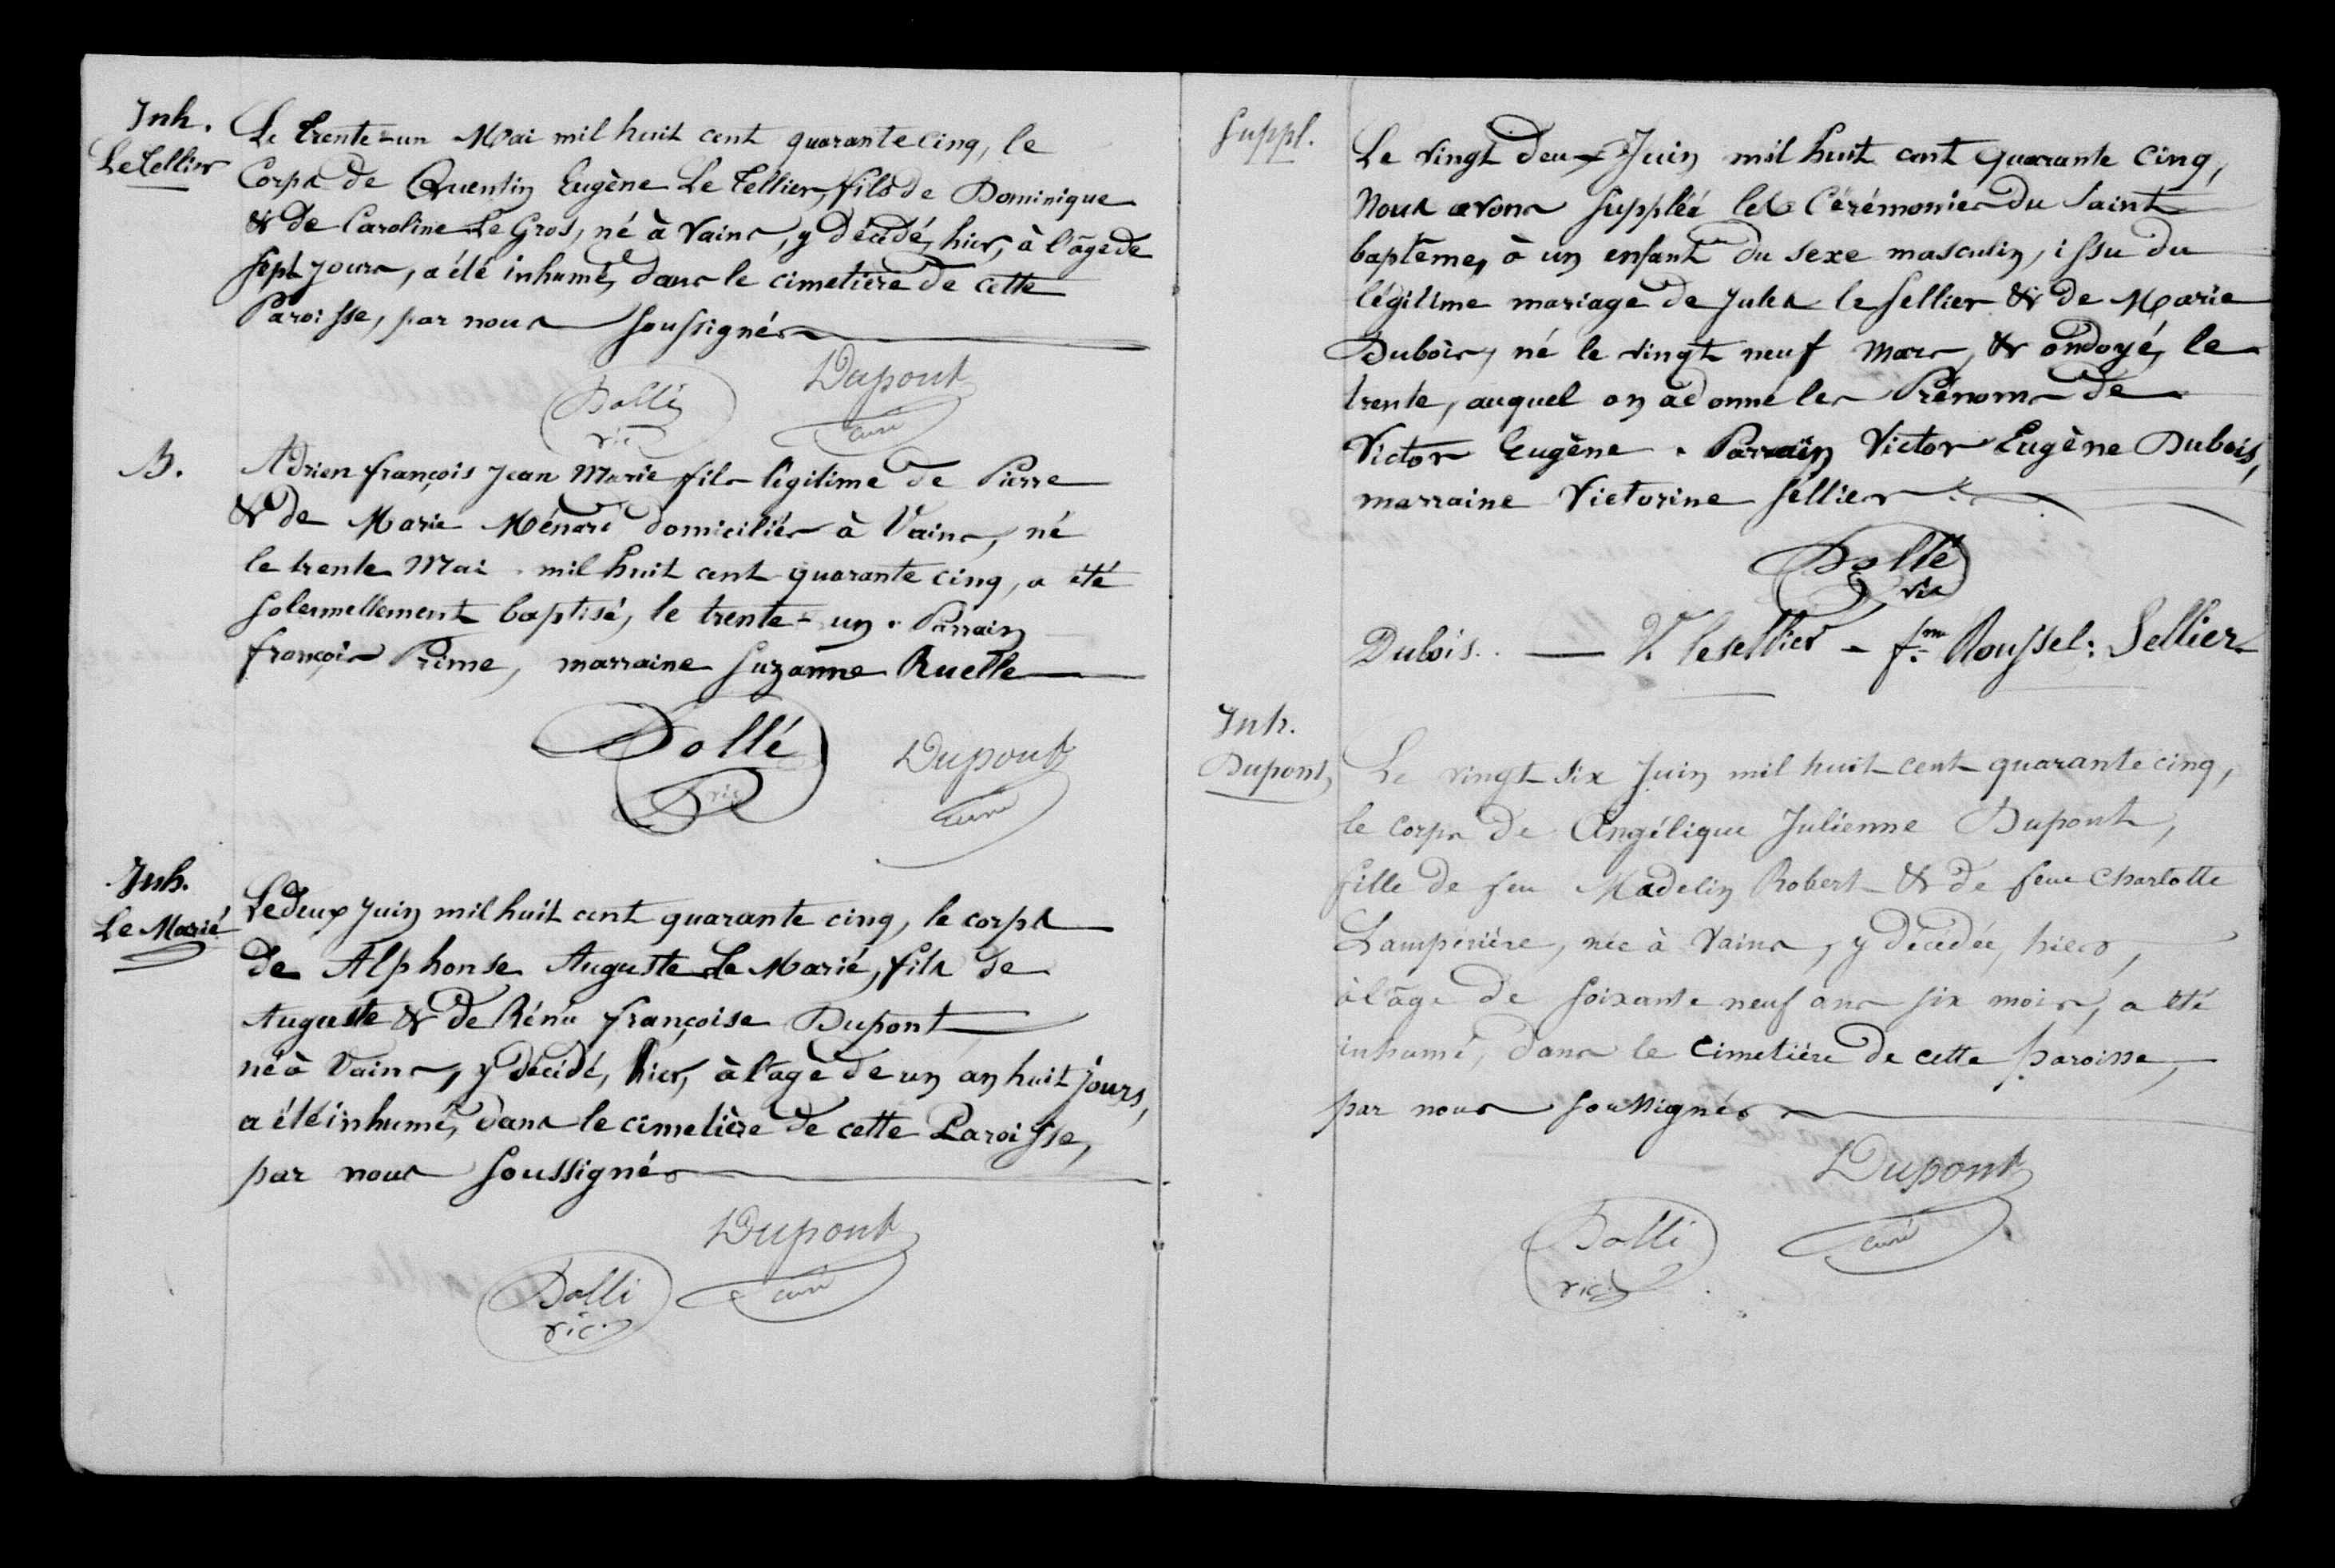 Inh.
Le Tellier
Le trente-un Mai mil huit cent quarante cinq, le
Corps de Quentin Eugène Le Tellier, fils de Dominique
& de Caroline Le Gros, né à Vains, y décédé, hier, à l'âge de
sept jours, a été inhumé, dans le cimetière de cette
Paroisse, par nous soussignés
Dupont
Dollé
curé
vic
B.
Adrien françois Jean Marie fils légitime de Pierre
& de Marie Ménard domiciliés à Vains, né
le trente Mai mil huit cent quarante cinq, a été
solennellement baptisé, le trente-un. Parrain
françois Prime, marraine Suzanne Ruelle
Dollé
Dupont
vic
curé
Inh.
Le Marié
Le deux Juin mil huit cent quarante cinq, le corps
de Alphonse Auguste Le Marié, fils de
Auguste & de Rénée françoise Dupont
né à Vains, y décédé, hier, à l'age de un an huit jours,
a été inhumé, dans le cimetière de cette Paroisse,
par nous soussignés
Dupont
curé
Dollé
vic.
Suppl.
Le vingt deux Juin mil huit cent quarante cinq,
Nous avons suppléé les Cérémonies du Saint
baptême, à un enfant du sexe masculin, issu du
légitime mariage de Jules le Sellier & de Marie
Dubois, né le vingt neuf Mars, & ondoyé, le
trente, auquel on a donné les Prénoms de
Victor Eugène. Parrain Victor Eugène Dubois,
marraine Victorine Sellier
Dollé
vic
Dubois. — V. lesellier - fme Roussel: Sellier
Inh.
Dupont
Le vingt six Juin mil huit cent quarante cinq,
le corps de Angélique Julienne Dupont,
fille de feu Madelin Robert & de feue Charlotte
Lampérière, née à Vains, y décédée, hier,
à l'âge de soixante neuf ans six mois, a été
inhumé, dans le cimetière de cette paroisse,
par nous soussignés
Dupont
curé
Dollé
vic